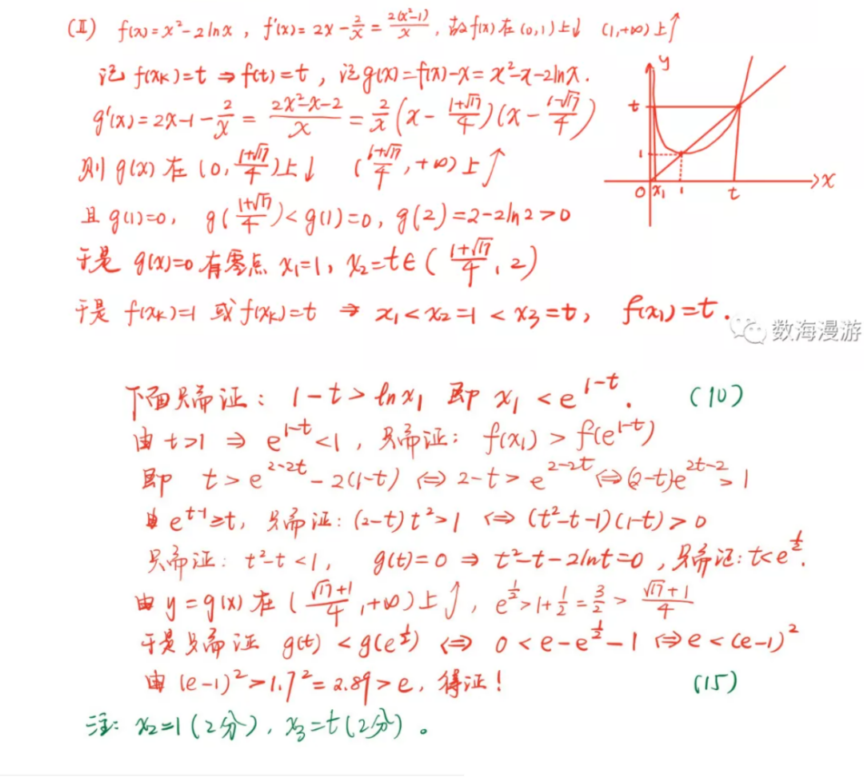 (II) f(x)=x²-2lnx, f'(x)=2x-2/x=2(x²-1)/x, 故f(x)在(0,1)上↓ (1,+∞)上↑
记f(xₖ)=t ⇒ f(t)=t, 记g(x)=f(x)-x=x²-x-2lnx.
g'(x)=2x-1-2/x=(2x²-x-2)/x=2/x(x-(1+√17)/4)(x-(1-√17)/4)
则g(x)在(0,(1+√17)/4)上↓ ((1+√17)/4,+∞)上↑
且g(1)=0, g((1+√17)/4)<g(1)=0, g(2)=2-2ln2>0
于是g(x)=0有零点x₁=1, x₂=t∈((1+√17)/4,2)
于是f(xₖ)=1或f(xₖ)=t ⇒ x₁<x₂=1<x₃=t, f(x₁)=t.
y
t
1
0 x₁ 1 t x
数海漫游
下面只需证: 1-t>lnx₁ 即 x₁<e^(1-t). (10)
由t>1 ⇒ e^(1-t)<1, 只需证: f(x₁)>f(e^(1-t))
即 t>e^(2-2t)-2(1-t) ⇔ 2-t>e^(2-2t) ⇔ (2-t)e^(2t-2)>1
由e^(t-1)≥t, 只需证: (2-t)t²>1 ⇔ (t²-t-1)(1-t)>0
只需证: t²-t<1, g(t)=0 ⇒ t²-t-2lnt=0, 只需证: t<e^(1/2).
由y=g(x)在((√17+1)/4,+∞)上↑, e^(1/2)>1+1/2=3/2>(√17+1)/4
于是只需证 g(t)<g(e^(1/2)) ⇔ 0<e-e^(1/2)-1 ⇔ e<(e-1)²
由(e-1)²>1.7²=2.89>e, 得证! (15)
注: x₂=1(2分), x₃=t(2分)。